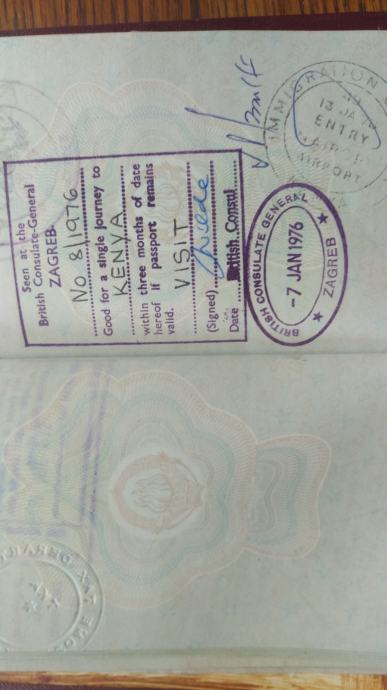 Seen at the
British Consulate-General
ZAGREB
No 8/1976
Good for a single journey to
KENYA
within three months of date
hereof if passport remains
valid. VISIT
(Signed)
British Consul
Date
BRITISH CONSULATE GENERAL
-7 JAN 1976
ZAGREB
IMMIGRATION
13 JA
ENTRY
AIRPORT